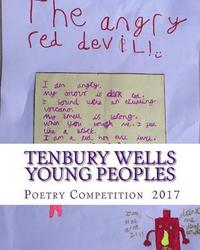 The angry
red devil!
I am angry.
my colour is dark red.
I sound like an erupting
volcano.
My smell is
When you touch me. I feel
like a
I am a red hot evil
TENBURY WELLS
YOUNG PEOPLES
Poetry Competition 2017